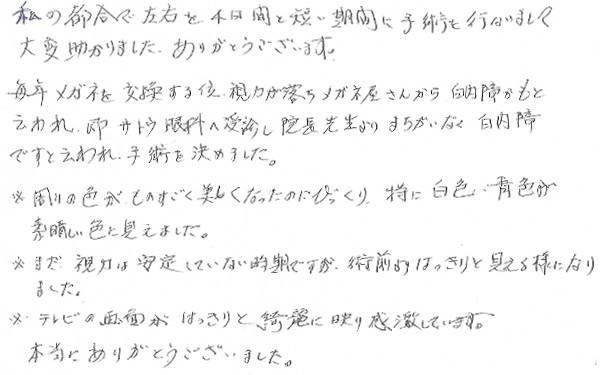 私の都合で左右を4日間と短い期間に手術を行ないまして
大変助かりました。ありがとうございます。
毎年メガネを交換する位視力が落ちメガネ屋さんから白内障かもと
云われ、即サトウ眼科へ受診し院長先生よりまちがいなく白内障
ですと云われ、手術を決めました。
※ 周りの色がものすごく美しくなったのにびっくり、特に白色、青色が
素晴しい色に見えました。
※ まだ視力は安定していない時期ですが、術前よりはっきりと見える様になり
ました。
※ テレビの画面がはっきりと綺麗に映り感激しています。
本当にありがとうございました。